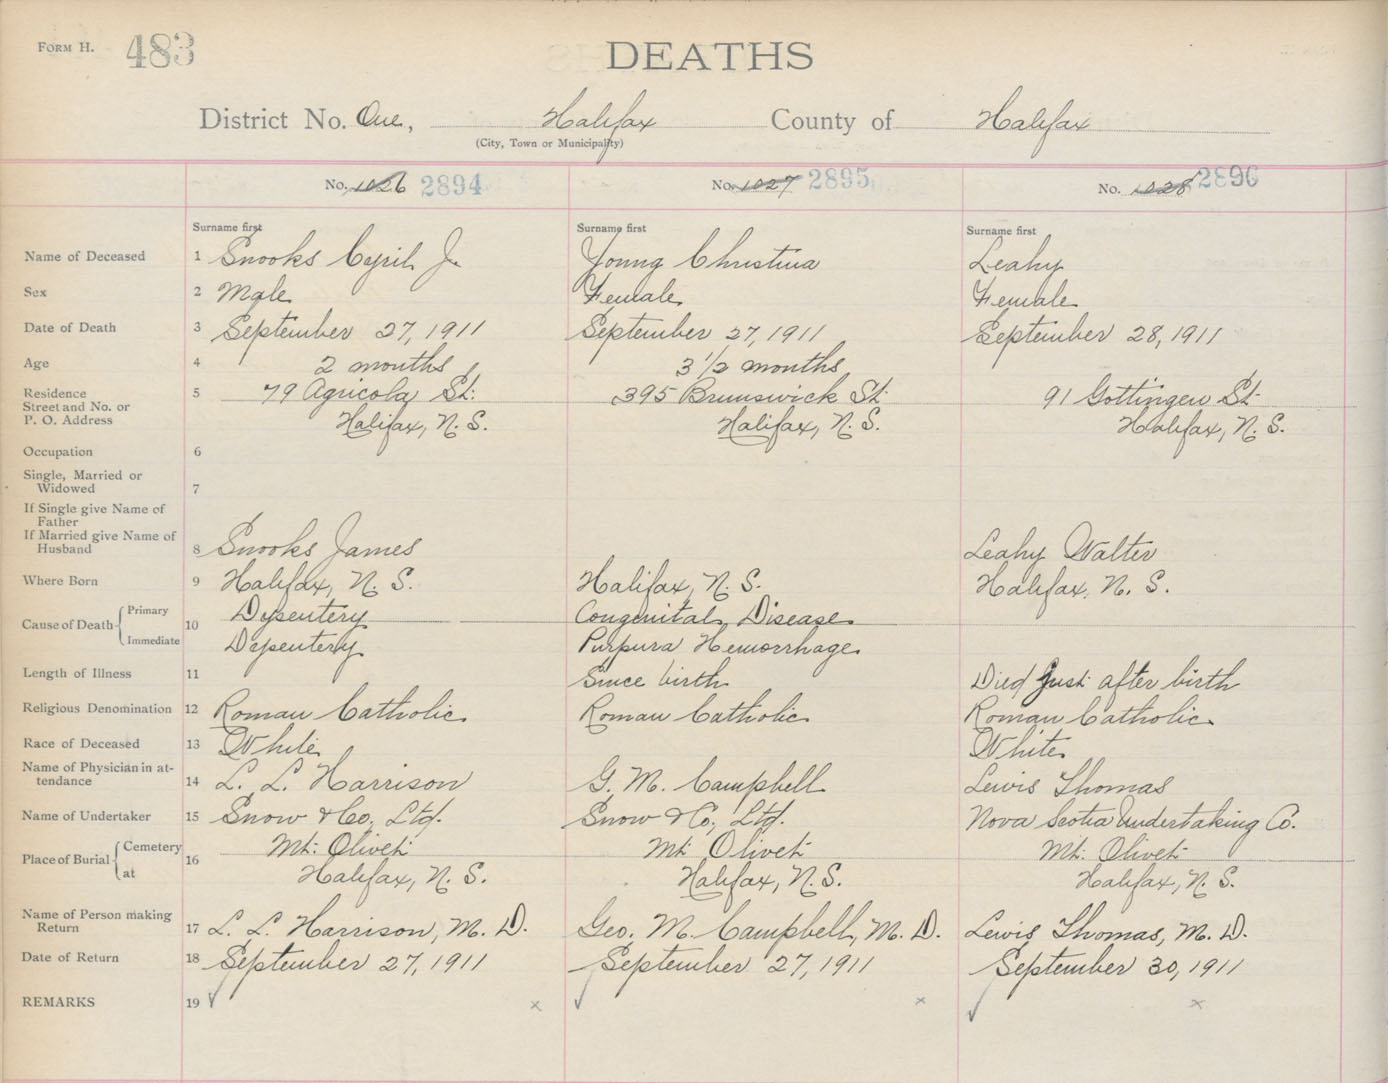 FORM H. 483
DEATHS
District No. One, Halifax County of Halifax
(City, Town or Municipality)
No. 1026 2894 No. 1027 2895 No. 1028 2896
Surname first Surname first Surname first
Name of Deceased 1 Snooks Cyril J. Young Christina Leahy
Sex 2 Male Female Female
Date of Death 3 September 27, 1911 September 27, 1911 September 28, 1911
Age 4 2 months 3 1/2 months
Residence 5 79 Agricola St. 395 Brunswick St. 91 Gottingen St.
Street and No. or
P. O. Address Halifax, N. S. Halifax, N. S. Halifax, N. S.
Occupation 6
Single, Married or
Widowed 7
If Single give Name of
Father
If Married give Name of
Husband 8 Snooks James Leahy Walter
Where Born 9 Halifax, N. S. Halifax, N. S. Halifax, N. S.
Cause of Death Primary 10 Dysentery Congenital Disease
Immediate Dysentery Purpura Hemorrhage
Length of Illness 11 Since birth Died just after birth
Religious Denomination 12 Roman Catholic Roman Catholic Roman Catholic
Race of Deceased 13 White White
Name of Physician in at-
tendance 14 L. L. Harrison G. M. Campbell Lewis Thomas
Name of Undertaker 15 Snow & Co, Ltd. Snow & Co, Ltd. Nova Scotia Undertaking Co.
Place of Burial Cemetery 16 Mt. Olivet Mt. Olivet Mt. Olivet
at Halifax, N. S. Halifax, N. S. Halifax, N. S.
Name of Person making
Return 17 L. L. Harrison, M. D. Geo. M. Campbell, M. D. Lewis Thomas, M. D.
Date of Return 18 September 27, 1911 September 27, 1911 September 30, 1911
REMARKS 19 ✓ x ✓ x ✓ x